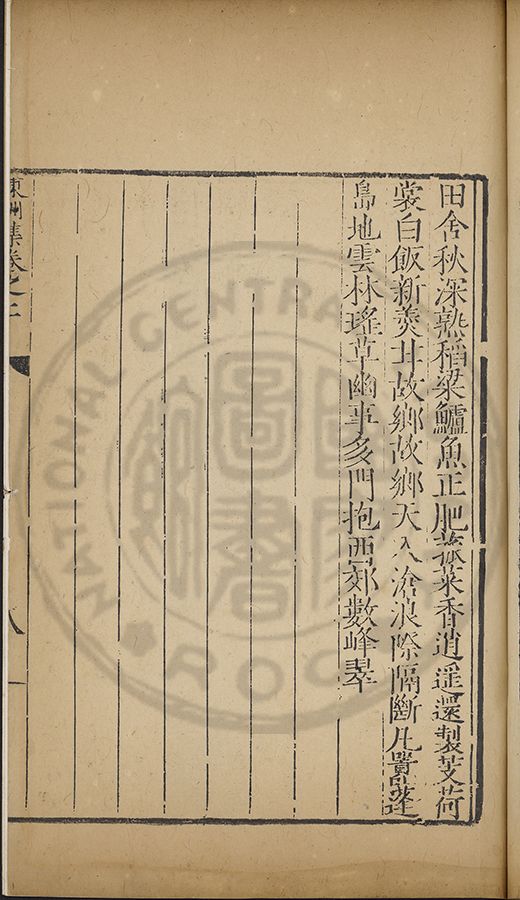 田舍秋深熟稻粱鱸魚正肥菰菜香逍遥還製芰荷
裳白飯新羮甘故鄉故鄉天入滄浪際隔斷凡囂蓬
島地雲林瑤草幽事多門抱西郊數峰翠
集卷之二
八